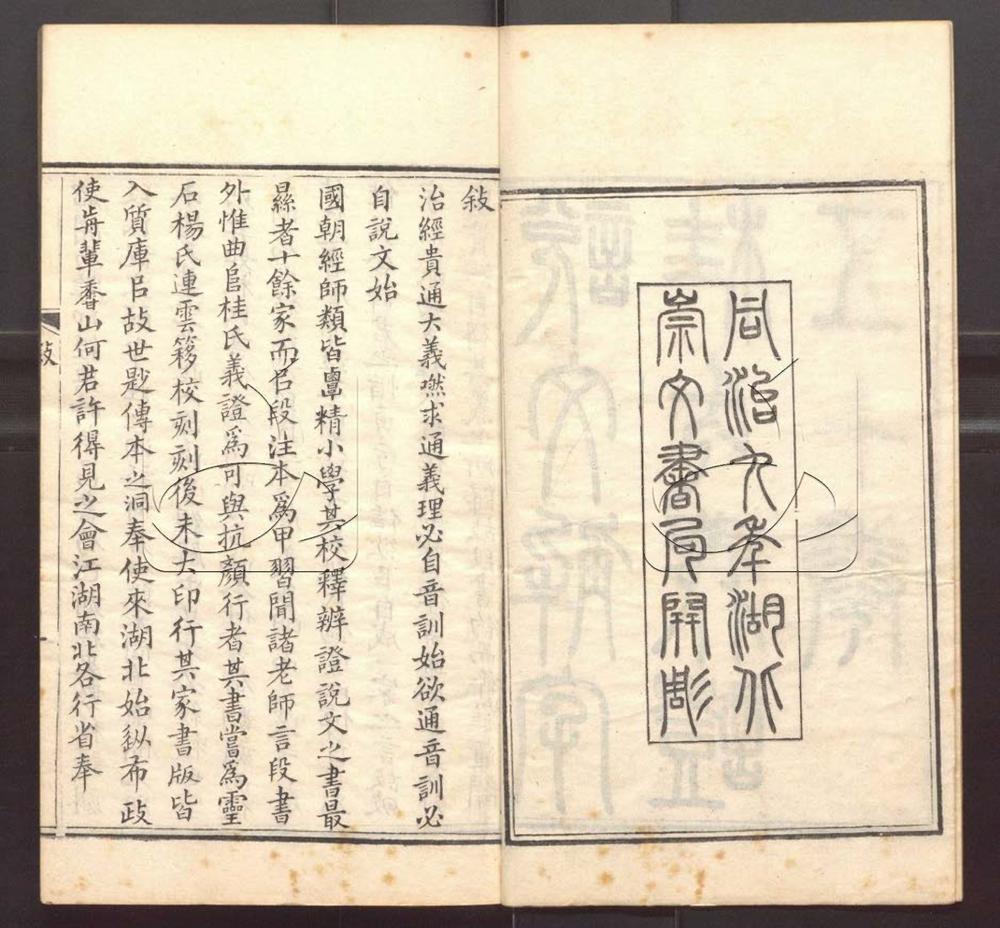 同治九年湖北
崇文書局開雕
敍
治經貴通大義嘫求通義理必自音訓始欲通音訓必
自說文始
國朝經師類皆覃精小學其校釋辨證說文之書最
緐者十餘家而㠯段注本爲甲習聞諸老師言段書
外惟曲𨸏桂氏義證爲可與抗顏行者其書嘗爲靈
石楊氏連雲簃校刻刻後未大印行其家書版皆
入質庫㠯故世尟傳本之洞奉使來湖北始縱布政
使歬輩香山何君許得見之會江湖南北各行省奉
敍
一